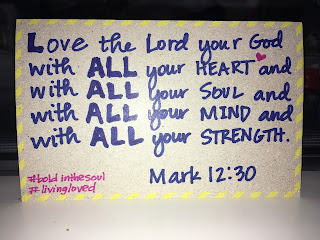 Love the Lord your God
with ALL your HEART and
with ALL your SOUL and
with ALL your MIND and
with ALL your STRENGTH.
Mark 12:30
#boldinthesoul
#livingloved